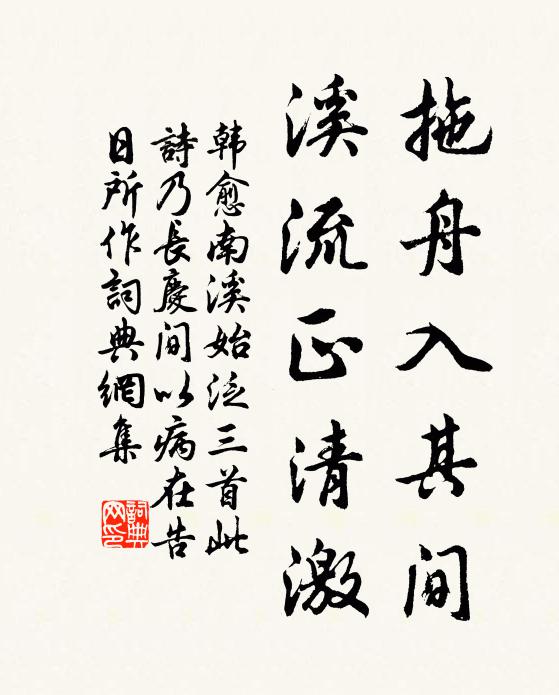 拖舟入其间
溪流正清激
韩愈南溪始泛三首此
詩乃長慶间以病在告
日所作詞典網集
詞典
网印